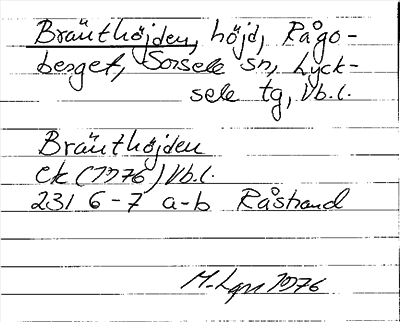 Bräuthöjden, höjd, Rågo-
berget, Sorsele sn, Lyck-
sele tg, Vb.l.
Bräuthöjden
ek (1976) Vb.l.
231 6-7 a-b Råstrand
M. Lgn 1976